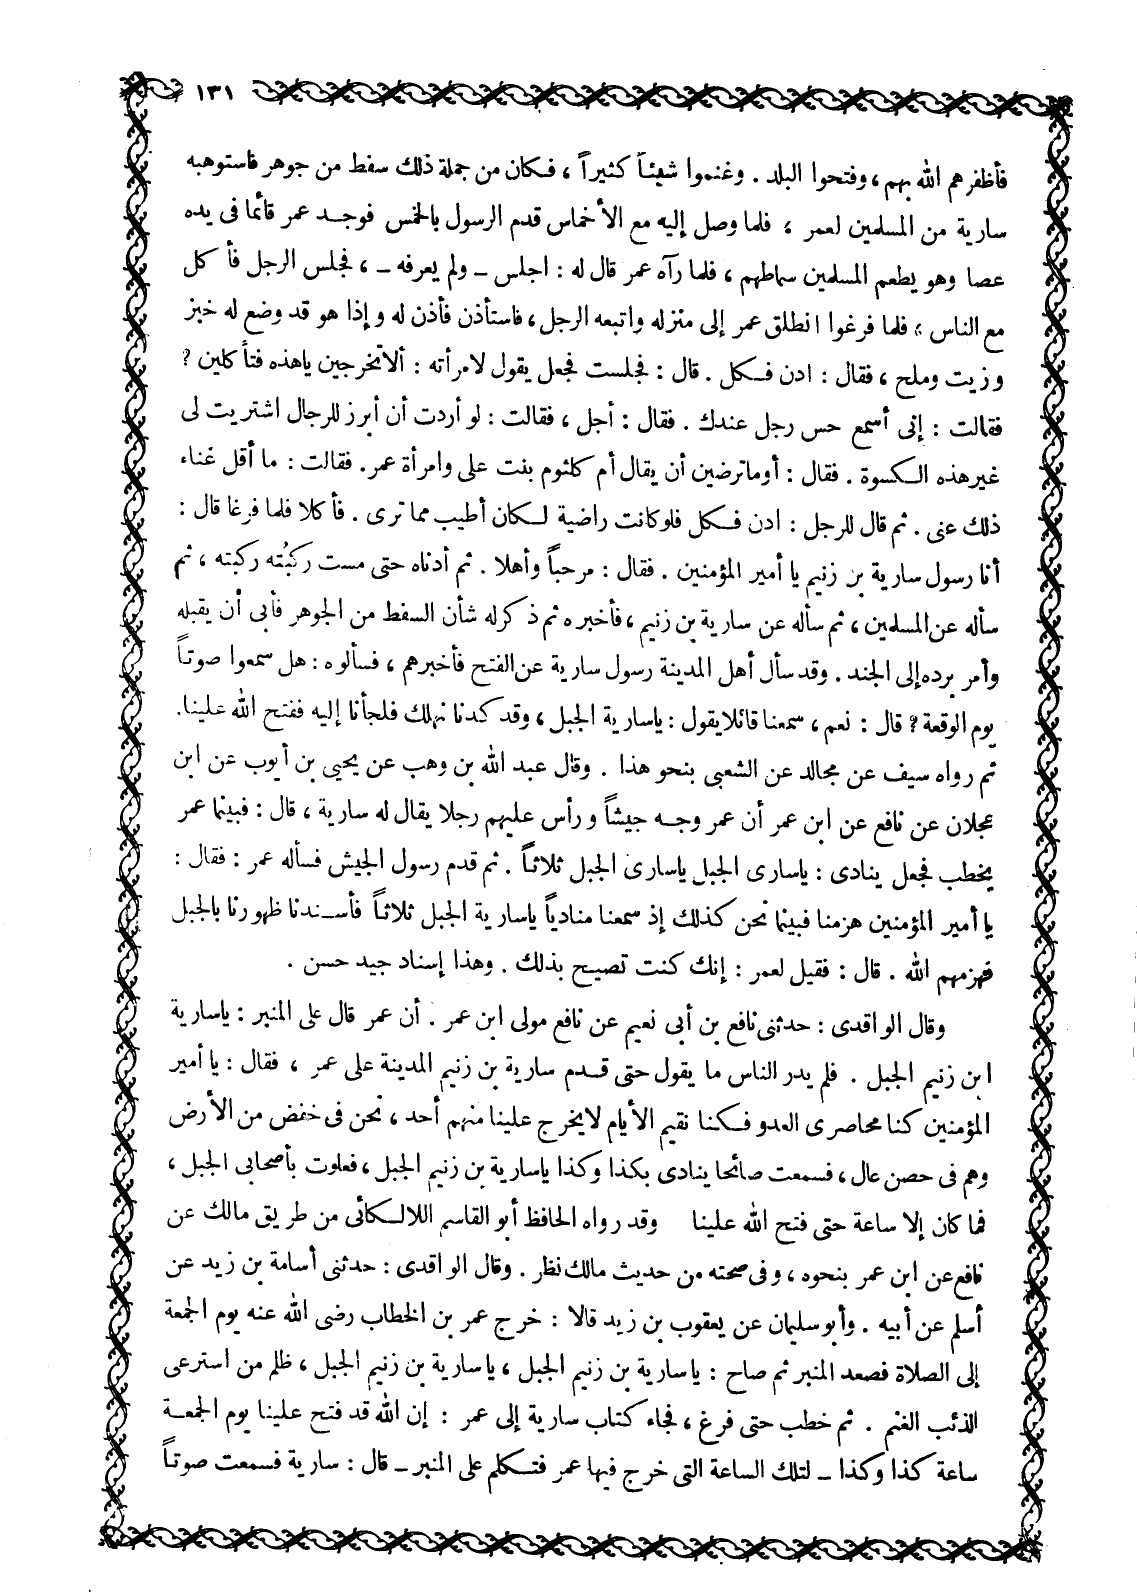 ١٣١
فأظفرهم الله بهم، وفتحوا البلد . وغنموا شيئاً كثيراً ، فكان من جملة ذلك سفط من جوهر فاستوهبه
سارية من المسلمين لعمر ، فلما وصل إليه مع الأخماس قدم الرسول بالخمس فوجد عمر قائما فى يده
عصا وهو يطعم المسلمين سماطهم ، فلما رآه عمر قال له : اجلس ـ ولم يعرفه ـ ، فجلس الرجل فأكل
مع الناس ، فلما فرغوا انطلق عمر إلى منزله واتبعه الرجل، فاستأذن فأذن له وإذا هو قد وضع له خبز
وزيت وملح ، فقال : ادن فكل . قال : فجلست فجعل يقول لامرأته : ألا تخرجين ياهذه فتأكلين ؟
فقالت : إنى أسمع حس رجل عندك . فقال : أجل ، فقالت : لو أردت أن أبرز للرجال اشتريت لى
غير هذه الكسوة . فقال : أوما ترضين أن يقال أم كلثوم بنت على وامرأة عمر. فقالت : ما أقل غناء
ذلك عنى . ثم قال للرجل : ادن فكل فلو كانت راضية لكان أطيب مما ترى . فأكلا فلما فرغا قال :
أنا رسول سارية بن زنيم يا أمير المؤمنين . فقال : مرحباً وأهلا . ثم أدناه حتى مست ركبتُه ركبته ، ثم
سأله عن المسلمين ، ثم سأله عن سارية بن زنيم ، فأخبره ثم ذكر له شأن السفط من الجوهر فأبى أن يقبله
وأمر برده إلى الجند . وقد سأل أهل المدينة رسول سارية عن الفتح فأخبرهم ، فسألوه : هل سمعوا صوتاً
يوم الوقعة ؟ قال : نعم ، سمعنا قائلا يقول : ياسارية الجبل ، وقد كدنا نهلك فلجأنا إليه ففتح الله علينا.
ثم رواه سيف عن مجالد عن الشعبى بنحو هذا . وقال عبد الله بن وهب عن يحيى بن أيوب عن ابن
عجلان عن نافع عن ابن عمر أن عمر وجه جيشاً ورأس عليهم رجلا يقال له سارية ، قال : فبينما عمر
يخطب فجعل ينادى : ياسارى الجبل ياسارى الجبل ثلاثاً . ثم قدم رسول الجيش فسأله عمر : فقال :
يا أمير المؤمنين هزمنا فبينما نحن كذلك إذ سمعنا منادياً ياسارية الجبل ثلاثاً فأسندنا ظهورنا بالجبل
فهزمهم الله . قال : فقيل لعمر : إنك كنت تصيح بذلك . وهذا إسناد جيد حسن .
وقال الواقدى : حدثنى نافع بن أبى نعيم عن نافع مولى ابن عمر . أن عمر قال على المنبر : ياسارية
ابن زنيم الجبل . فلم يدر الناس ما يقول حتى قدم سارية بن زنيم المدينة على عمر ، فقال : يا أمير
المؤمنين كنا محاصرى العدو فكنا نقيم الأيام لا يخرج علينا منهم أحد ، نحن فى خفض من الأرض
وهم فى حصن عال ، فسمعت صائحا ينادى بكذا وكذا ياسارية بن زنيم الجبل ، فعلوت بأصحابى الجبل ،
فما كان إلا ساعة حتى فتح الله علينا وقد رواه الحافظ أبو القاسم اللالكائى من طريق مالك عن
نافع عن ابن عمر بنحوه ، وفى صحته من حديث مالك نظر . وقال الواقدى : حدثنى أسامة بن زيد عن
أسلم عن أبيه . وأبو سليمان عن يعقوب بن زيد قالا : خرج عمر بن الخطاب رضى الله عنه يوم الجمعة
إلى الصلاة فصعد المنبر ثم صاح : ياسارية بن زنيم الجبل ، ياسارية بن زنيم الجبل ، ظلم من استرعى
الذئب الغنم . ثم خطب حتى فرغ ، فجاء كتاب سارية إلى عمر : إن الله قد فتح علينا يوم الجمعة
ساعة كذا وكذا ـ لتلك الساعة التى خرج فيها عمر فتكلم على المنبر ـ قال : سارية فسمعت صوتاً